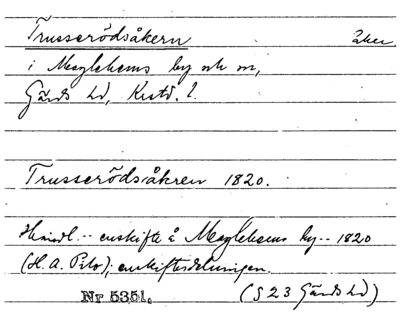 Trusserödsåkern åker
i Maglehems by och sn,
Gärds hd, Krstd. l.
Trusserödsåkren 1820.
Handl. -- enskifte å Maglehems by -- 1820
(H. A. Pilo); enskiftesdelningen.
Nr 5351. (§ 23 Gärds hd)